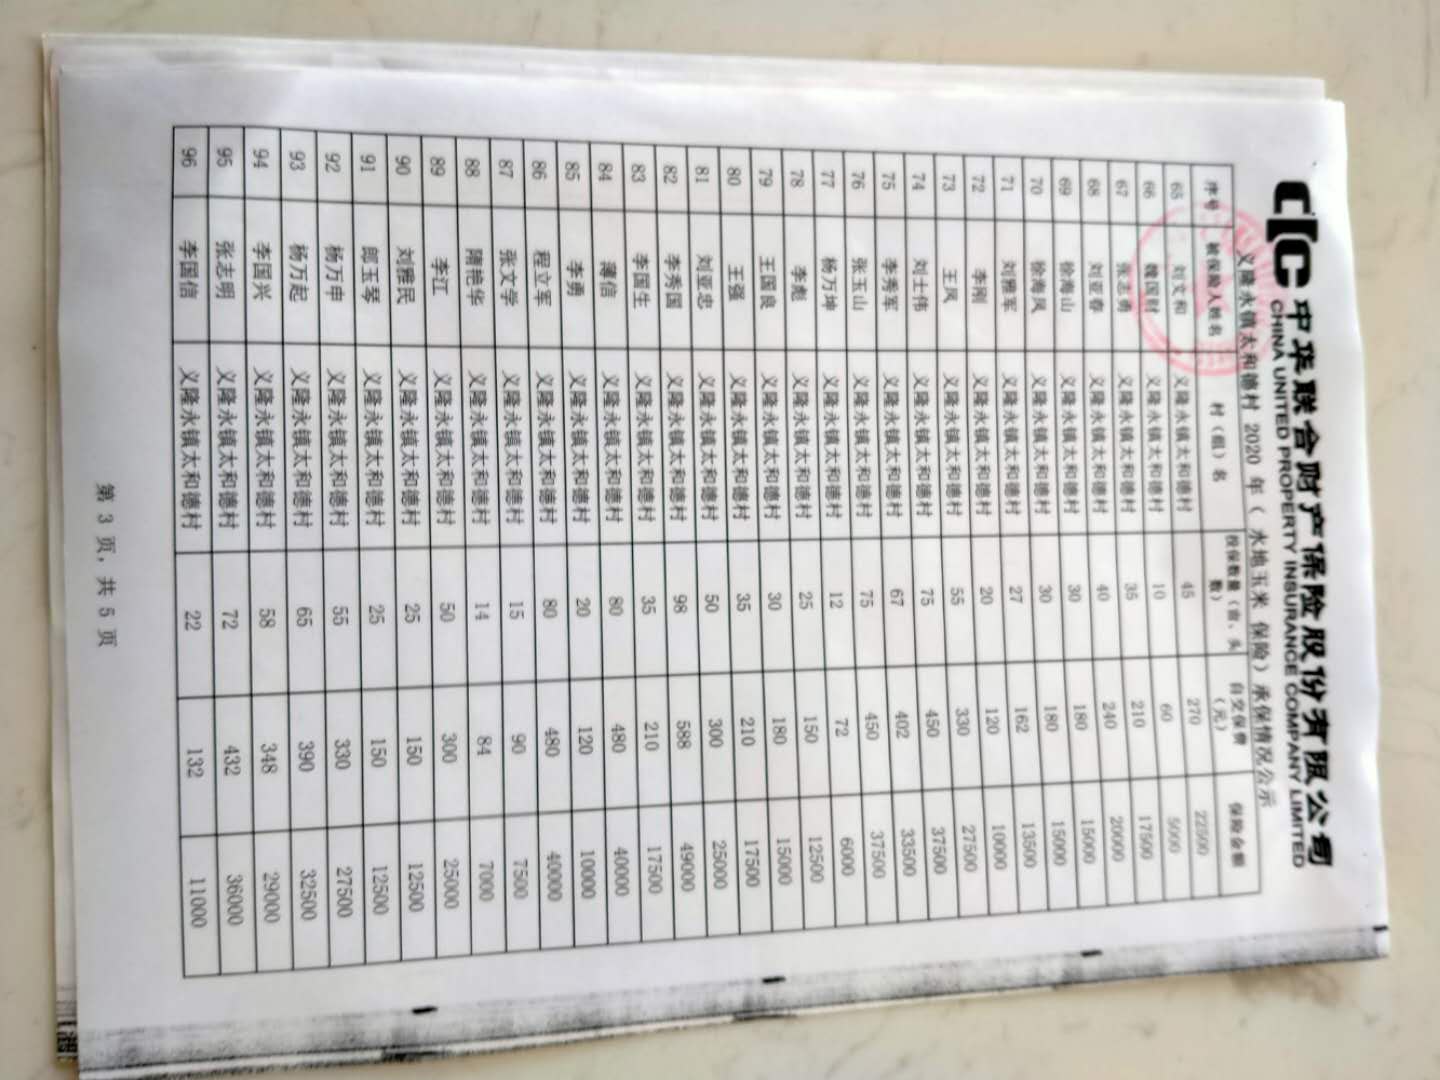 中华联合财产保险股份有限公司
CHINA UNITED PROPERTY INSURANCE COMPANY LIMITED
义隆永镇太和德村 2020 年（ 水地玉米 保险）承保情况公示
序号 被保险人姓名 村（组）名 投保数量（亩、头数） 自交保费（元） 保险金额
65 刘文和 义隆永镇太和德村 45 270 22500
66 魏国财 义隆永镇太和德村 10 60 5000
67 张志勇 义隆永镇太和德村 35 210 17500
68 刘亚春 义隆永镇太和德村 40 240 20000
69 徐海山 义隆永镇太和德村 30 180 15000
70 徐海凤 义隆永镇太和德村 30 180 15000
71 刘雅军 义隆永镇太和德村 27 162 13500
72 李刚 义隆永镇太和德村 20 120 10000
73 王凤 义隆永镇太和德村 55 330 27500
74 刘士伟 义隆永镇太和德村 75 450 37500
75 李秀军 义隆永镇太和德村 67 402 33500
76 张玉山 义隆永镇太和德村 75 450 37500
77 杨万坤 义隆永镇太和德村 12 72 6000
78 李彪 义隆永镇太和德村 25 150 12500
79 王国良 义隆永镇太和德村 30 180 15000
80 王强 义隆永镇太和德村 35 210 17500
81 刘亚忠 义隆永镇太和德村 50 300 25000
82 李秀国 义隆永镇太和德村 98 588 49000
83 李国生 义隆永镇太和德村 35 210 17500
84 薄信 义隆永镇太和德村 80 480 40000
85 李勇 义隆永镇太和德村 20 120 10000
86 程立军 义隆永镇太和德村 80 480 40000
87 张文学 义隆永镇太和德村 15 90 7500
88 隋艳华 义隆永镇太和德村 14 84 7000
89 李江 义隆永镇太和德村 50 300 25000
90 刘雅民 义隆永镇太和德村 25 150 12500
91 郎玉琴 义隆永镇太和德村 25 150 12500
92 杨万申 义隆永镇太和德村 55 330 27500
93 杨万起 义隆永镇太和德村 65 390 32500
94 李国兴 义隆永镇太和德村 58 348 29000
95 张志明 义隆永镇太和德村 72 432 36000
96 李国信 义隆永镇太和德村 22 132 11000
第 3 页，共 5 页